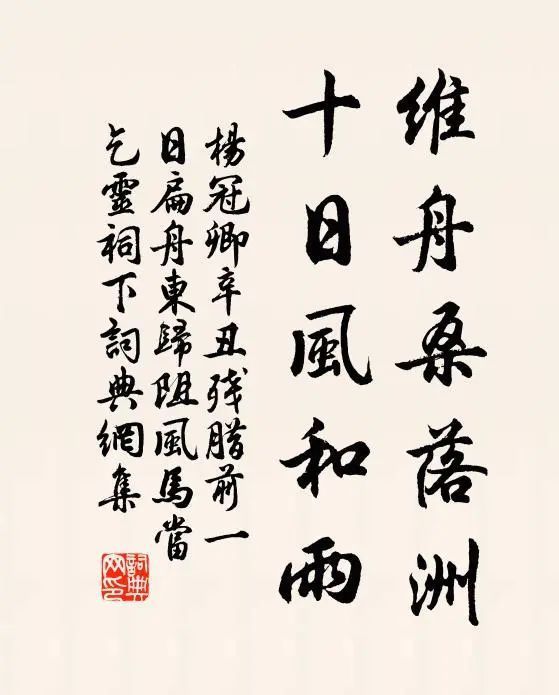 維舟桑落洲
十日風和雨
楊冠卿辛丑残腊前一
日扁舟東歸阻風馬當
乞靈祠下詞典網集
詞典
网印